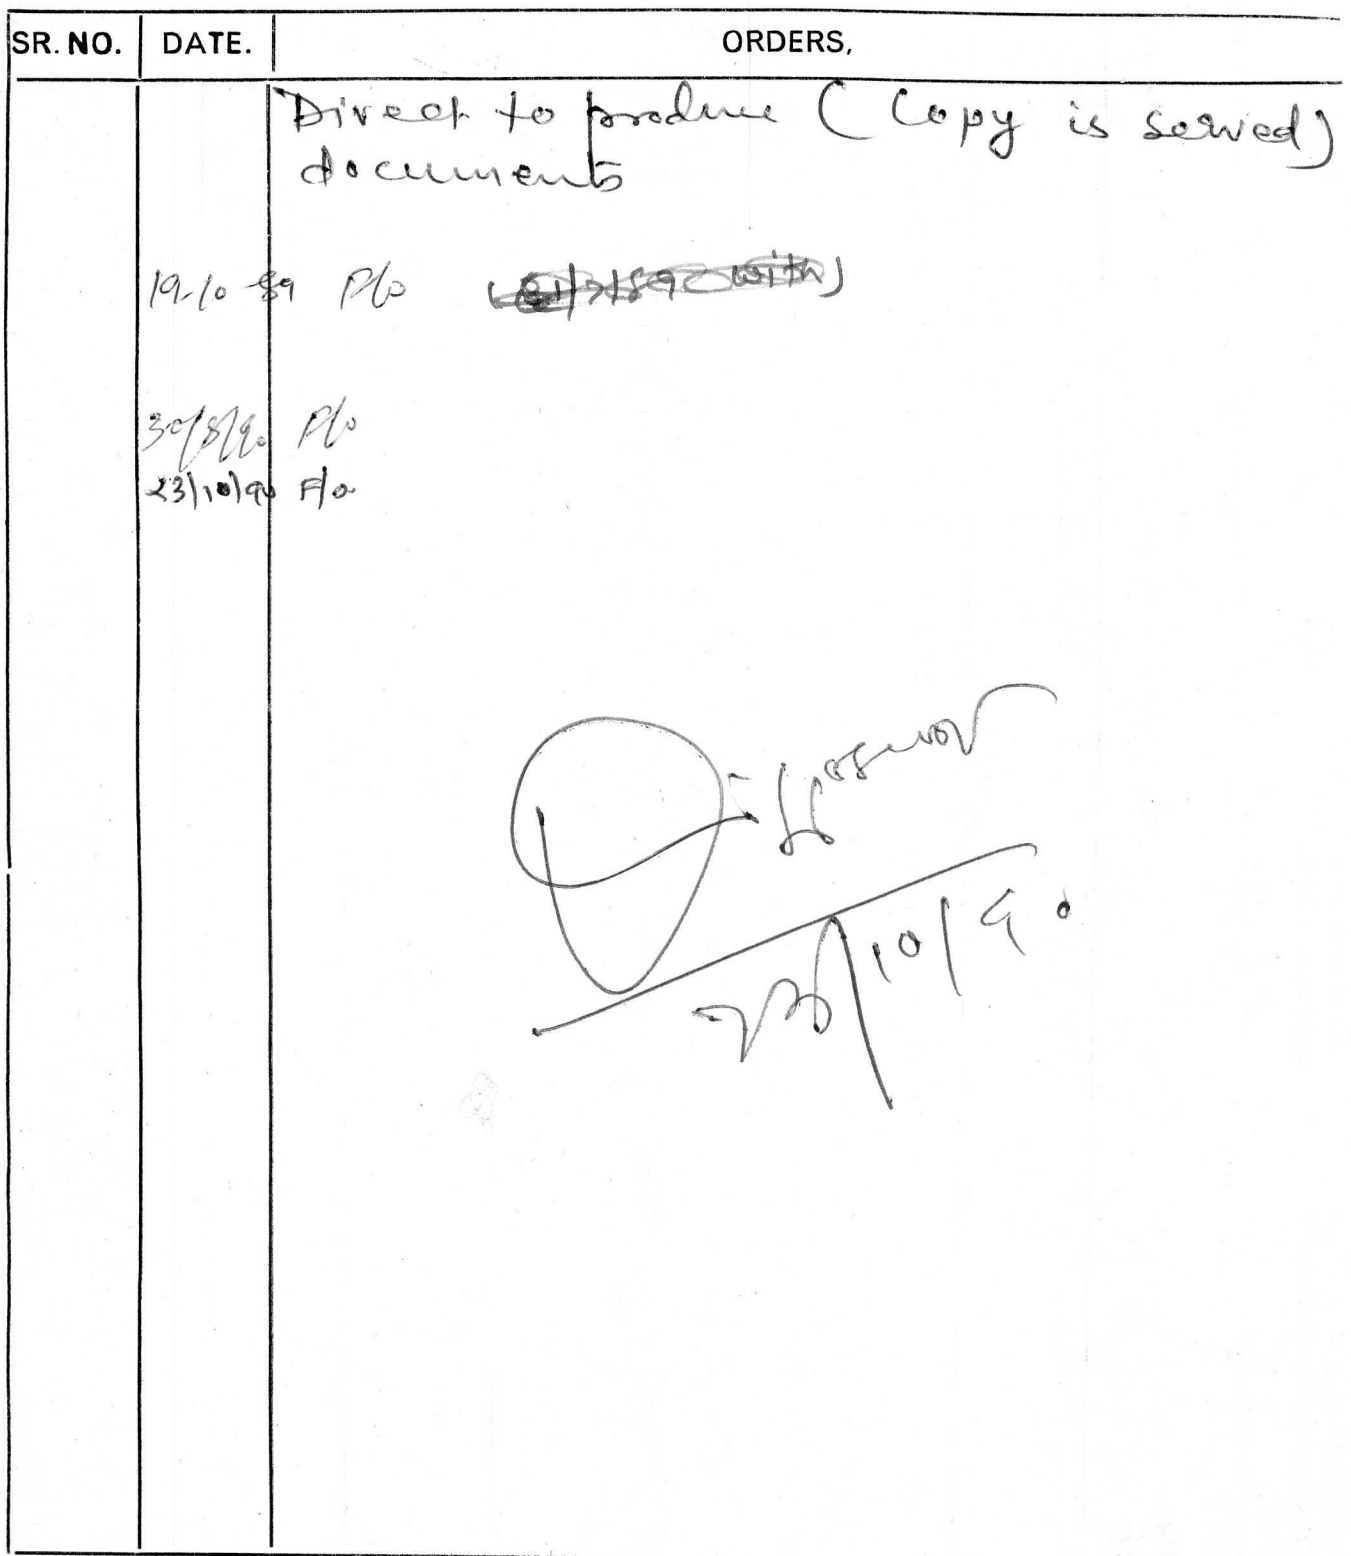 SR. NO. DATE. ORDERS,
Direct to produce (Copy is served)
documents
19-10-89 P/o
30/8/90 P/o
23/10/90 F/o
23/10/90